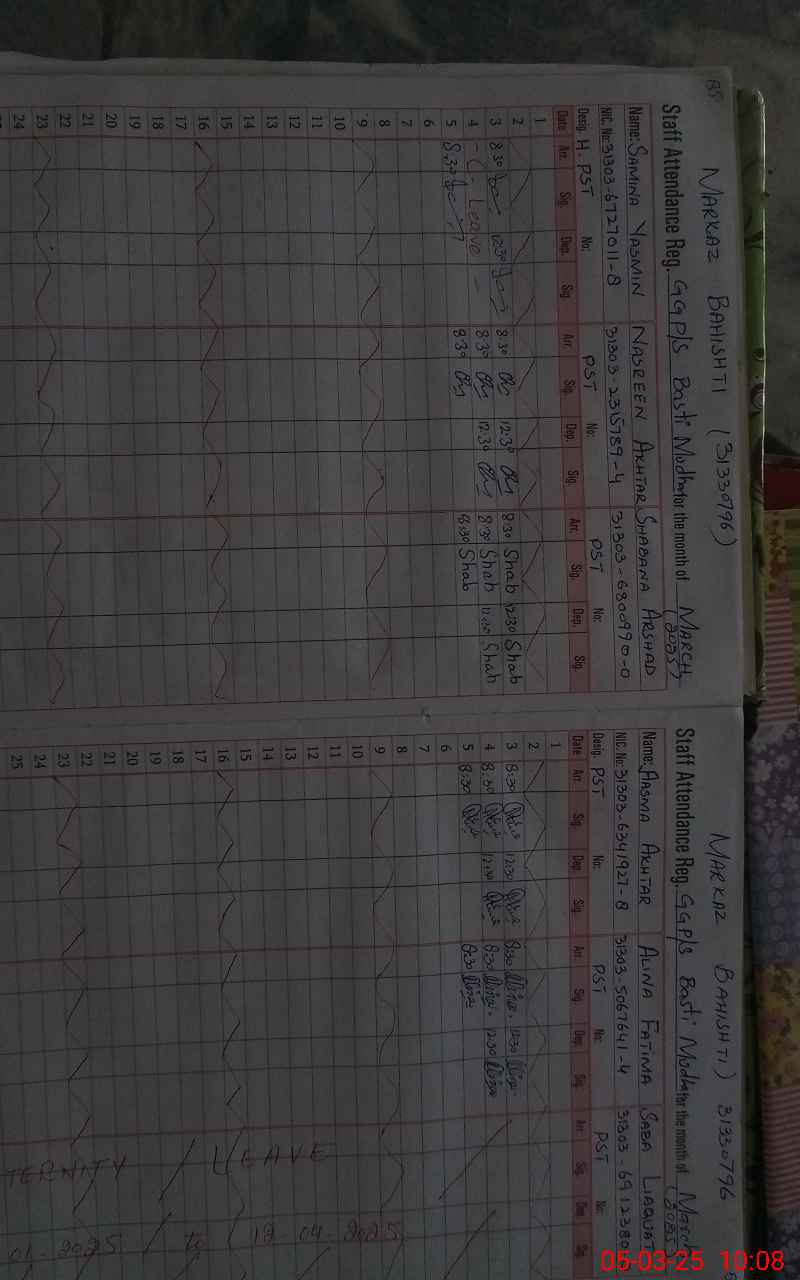 135
MARKAZ BAHISHTI (31330796)
Staff Attendance Reg. GGP/S Basti Modha for the month of MARCH (2025)
Name: SAMINA YASMIN NASREEN AKHTAR SHABANA ARSHAD
NIC. No: 31303-6727011-8 31303-2315789-4 31303-6800990-0
Desig. H. PST No: PST No: PST No:
Date Arr. Sig. Dep. Sig. Arr. Sig. Dep. Sig. Arr. Sig. Dep. Sig.
1
2
3 8:30 12:30 8:30 12:30 8:30 Shab 12:30 Shab
4 - C. Leave - 8:30 12:30 8:30 Shab 11:30 Shab
5 8:30 8:30 8:30 Shab
6
7
8
9
10
11
12
13
14
15
16
17
18
19
20
21
22
23
24
MARKAZ BAHISHTI) 31330796
Staff Attendance Reg. GGP/S Basti Modha for the month of March (2025)
Name: AASMA AKHTAR ALINA FATIMA SABA LIAQUAT
NIC. No: 31303-6341927-8 31303-5067641-4 31303-6912380
Desig. PST No: PST No: PST No:
Date Arr. Sig. Dep. Sig. Arr. Sig. Dep. Sig. Arr. Sig. Dep. Sig.
1
2
3 8:30 12:30 8:30 12:30
4 8:30 12:30 8:30 12:30
5 8:30 8:30
6
7
8
9
10
11
12
13
14
15
16
17
18
19
20
21
22
23
24
25
LEAVE
TERNITY
01-2025 to 12-04-2025
05-03-25 10:08